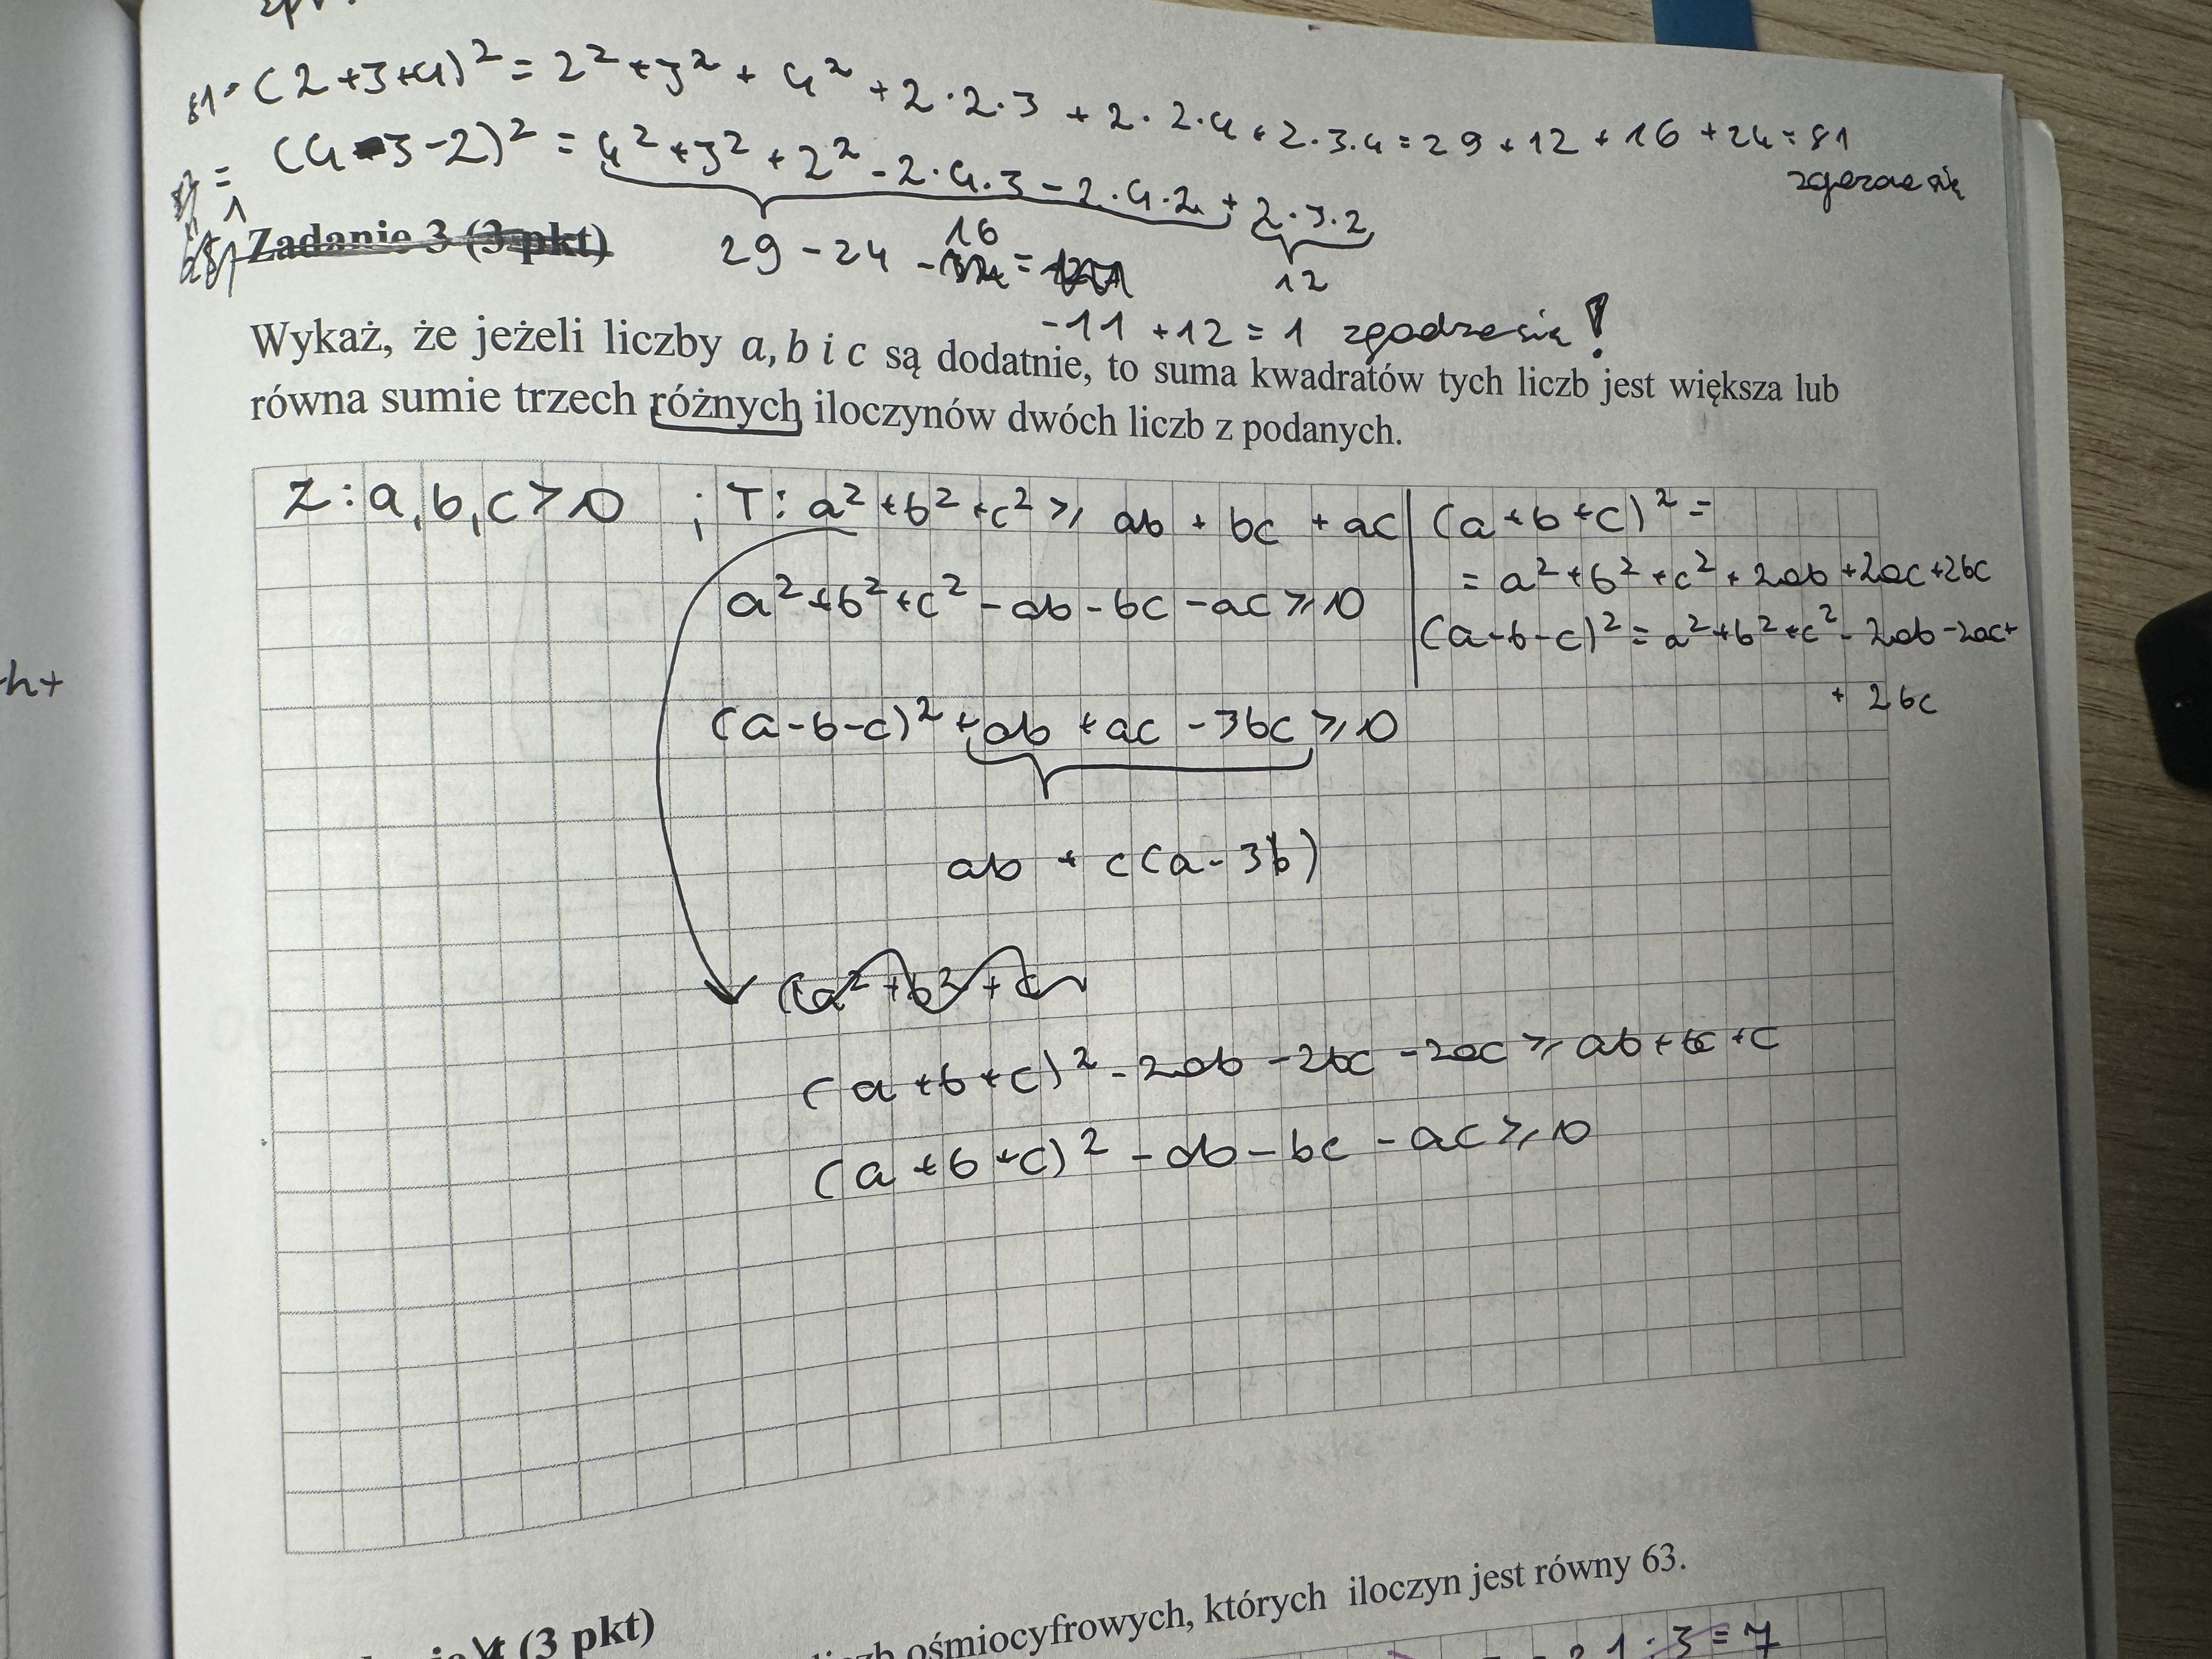 81 = (2+3+4)² = 2² + 3² + 4² + 2·2·3 + 2·2·4 + 2·3·4 = 29 + 12 + 16 + 24 = 81
(4-3-2)² = 4² + 3² + 2² - 2·4·3 - 2·4·2 + 2·3·2
= 1
Zadanie 3 (3 pkt)
29 - 24 - 16 =
12
-11 + 12 = 1 zgadza się!
Wykaż, że jeżeli liczby a, b i c są dodatnie, to suma kwadratów tych liczb jest większa lub
równa sumie trzech różnych iloczynów dwóch liczb z podanych.
Z: a, b, c > 0 ; T: a² + b² + c² ≥ ab + bc + ac
(a+b+c)² =
= a² + b² + c² + 2ab + 2ac + 2bc
a² + b² + c² - ab - bc - ac ≥ 0
(a-b-c)² = a² + b² + c² - 2ab - 2ac +
+ 2bc
-h+
(a-b-c)² + ab + ac - 3bc ≥ 0
ab + c(a-3b)
(a² + b² + c
(a+b+c)² - 2ab - 2bc - 2ac ≥ ab + bc + c
(a+b+c)² - ab - bc - ac ≥ 0
4 (3 pkt)
liczb ośmiocyfrowych, których iloczyn jest równy 63.
21:3=7